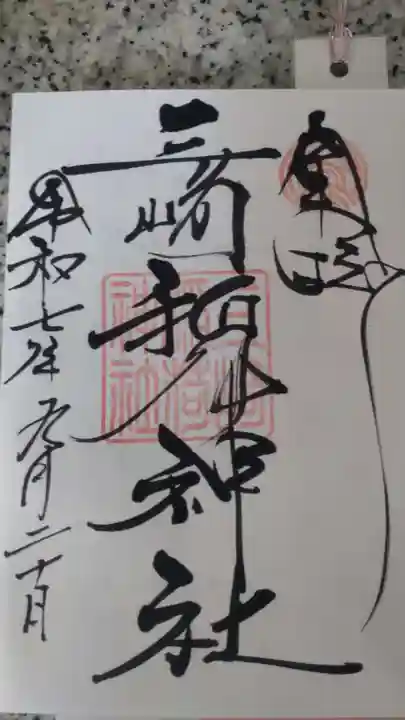 奉拝
三崎稲荷神社
令和七年九月二十日